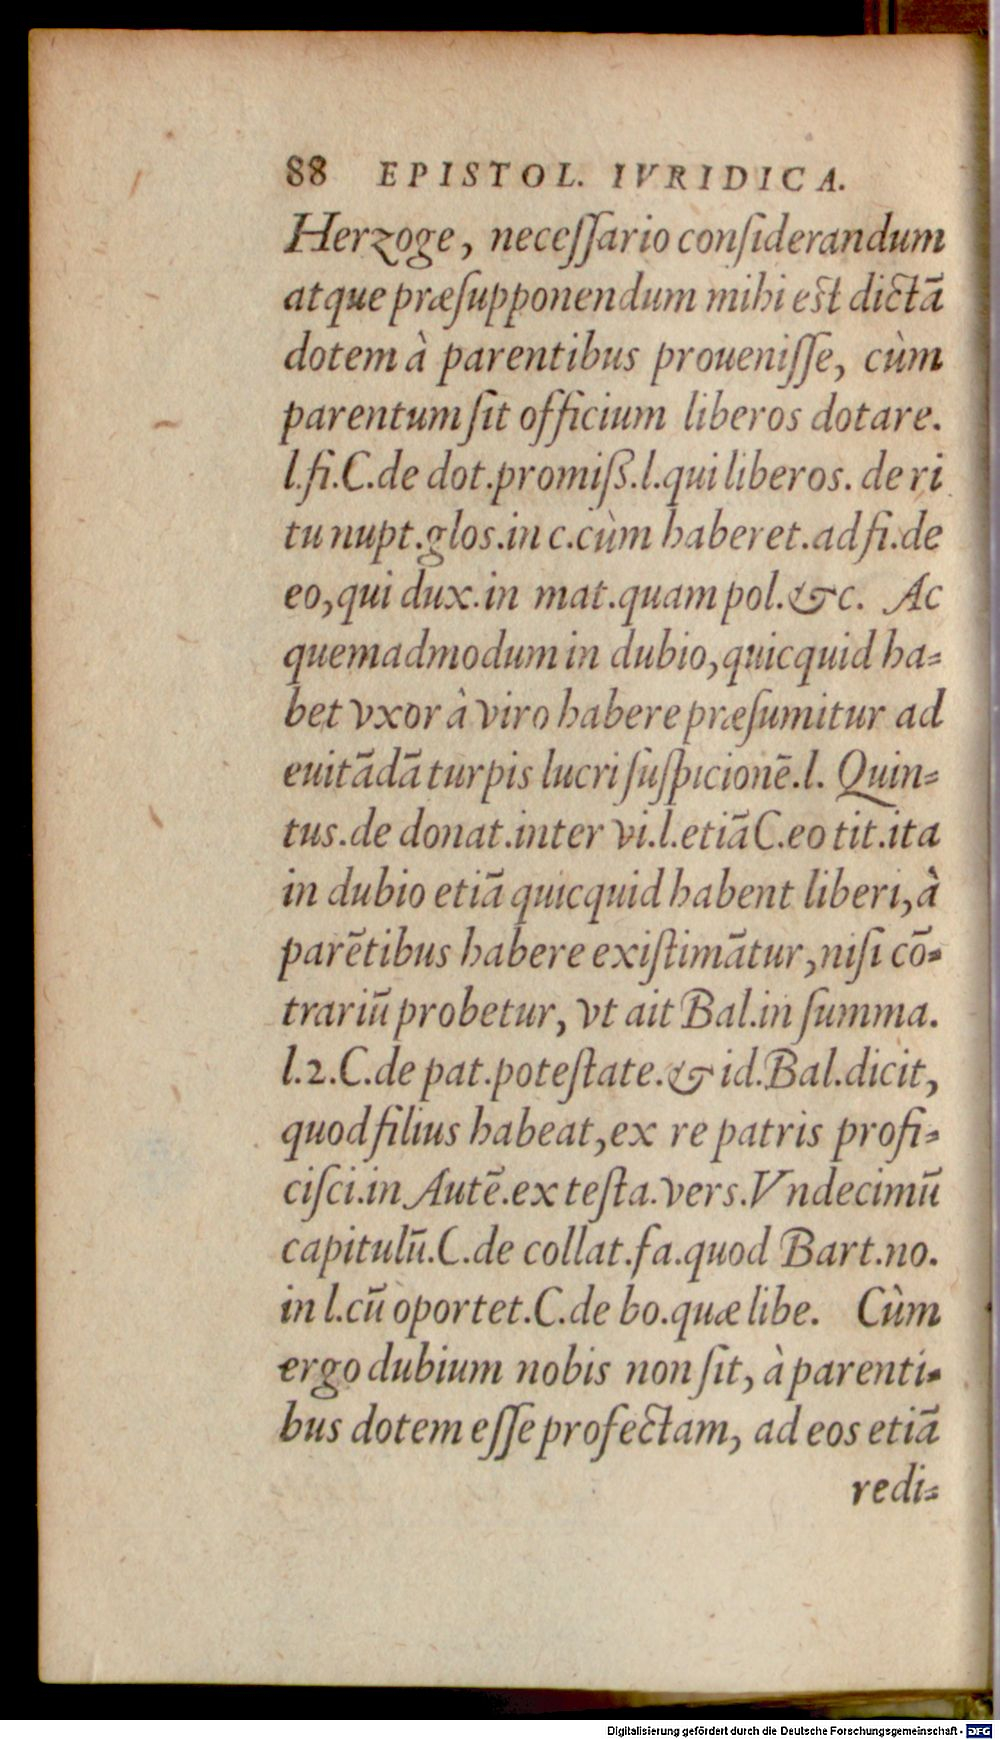 88 EPISTOL. IVRIDICA.
Herzoge, neceſſario conſiderandum
atque præſupponendum mihi est dictā
dotem à parentibus proueniſſe, cùm
parentum ſit officium liberos dotare.
l.fi.C.de dot.promiß.l.qui liberos. de ri
tu nupt.glos.in c.cùm haberet.ad fi.de
eo,qui dux.in mat.quam pol.&c. Ac
quemadmodum in dubio,quicquid ha-
bet vxor à viro habere præſumitur ad
euitādā turpis lucri ſuſpicionē.l. Quin-
tus.de donat.inter vi.l.etiā C.eo tit.ita
in dubio etiā quicquid habent liberi,à
parētibus habere exiſtimātur,niſi cō-
trariū probetur, vt ait Bal.in ſumma.
l.2.C.de pat.poteſtate.& id.Bal.dicit,
quod filius habeat,ex re patris profi-
ciſci.in Autē.ex teſta.vers.Vndecimū
capitulū.C.de collat.fa.quod Bart.no.
in l.cū oportet.C.de bo.quæ libe. Cùm
ergo dubium nobis non ſit, à parenti-
bus dotem eſſe profectam, ad eos etiā
redi-
Digitalisierung gefördert durch die Deutsche Forschungsgemeinschaft - DFG